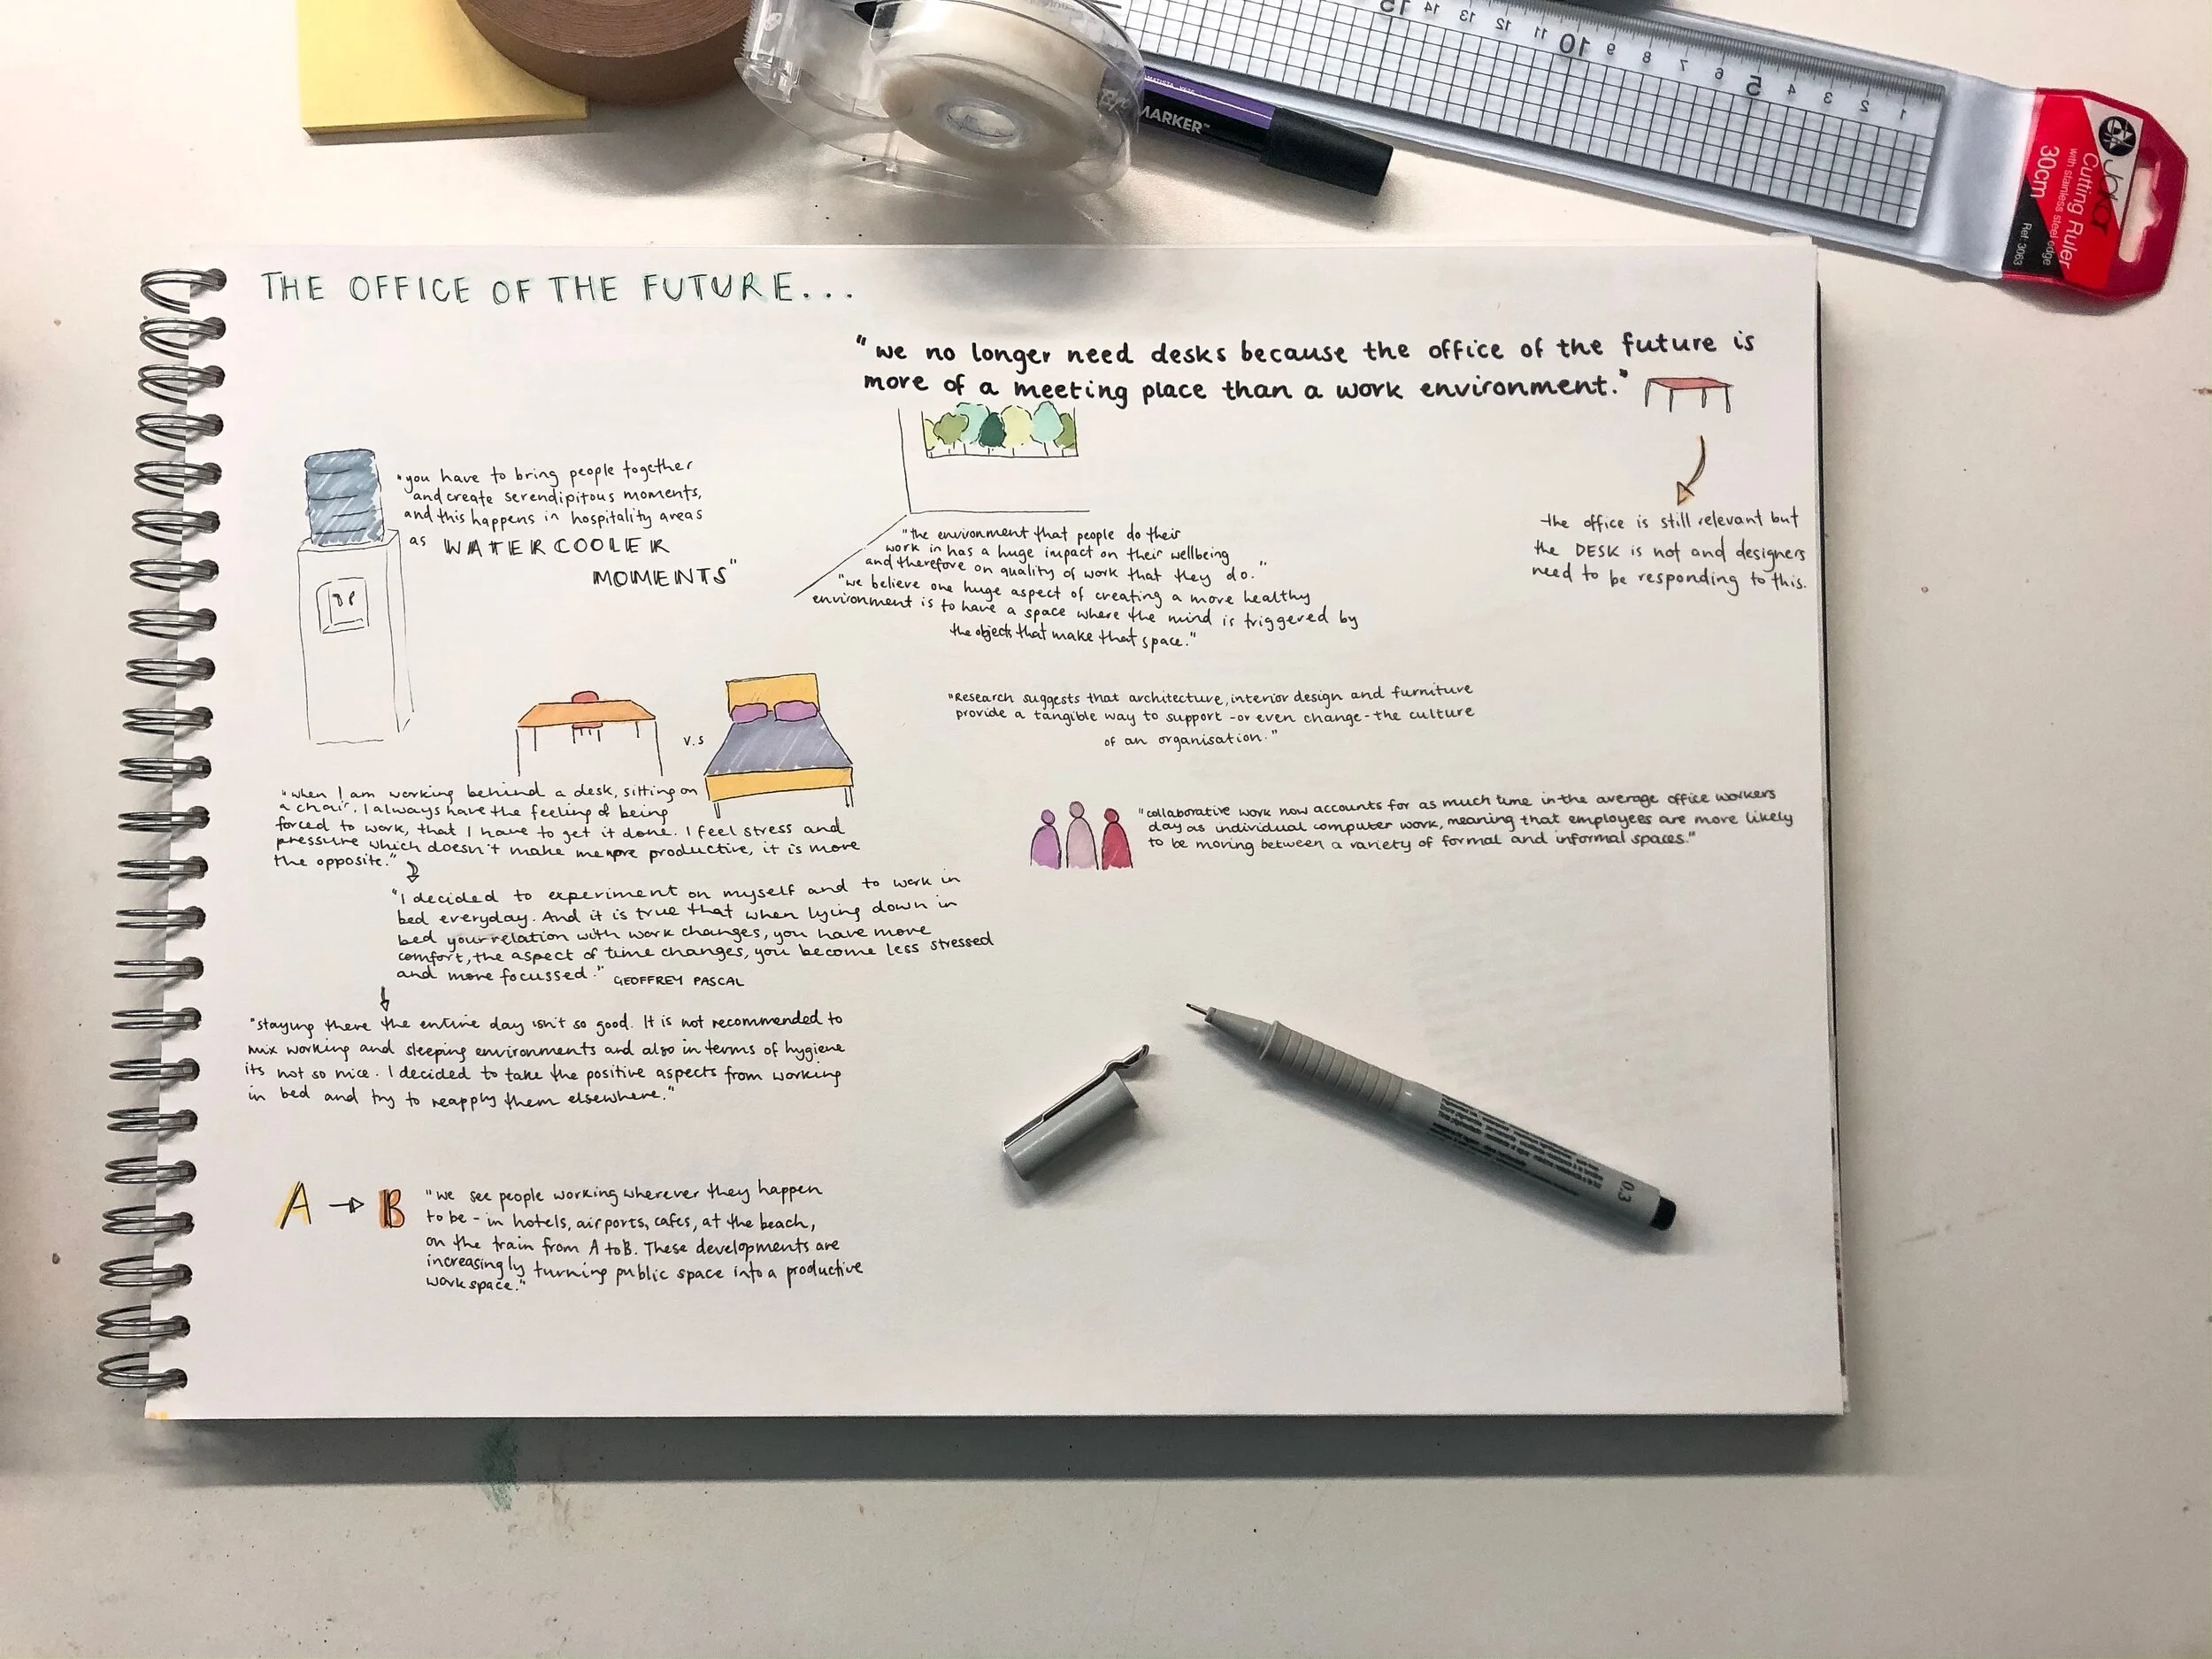 MARKER™
15 14 13 12 11 10 9 8 7 6 5 4 3 2 1
Jakar
Cutting Ruler
with stainless steel edge
30cm
Ref: 3063
THE OFFICE OF THE FUTURE...
"we no longer need desks because the office of the future is
more of a meeting place than a work environment."
the office is still relevant but
the DESK is not and designers
need to be responding to this.
"you have to bring people together
and create serendipitous moments,
and this happens in hospitality areas
as WATERCOOLER
MOMENTS"
"the environment that people do their
work in has a huge impact on their wellbeing
and therefore on quality of work that they do."
"we believe one huge aspect of creating a more healthy
environment is to have a space where the mind is triggered by
the objects that make that space."
"Research suggests that architecture, interior design and furniture
provide a tangible way to support - or even change - the culture
of an organisation."
"collaborative work now accounts for as much time in the average office workers
day as individual computer work, meaning that employees are more likely
to be moving between a variety of formal and informal spaces."
v.s
"when I am working behind a desk, sitting on
a chair. I always have the feeling of being
forced to work, that I have to get it done. I feel stress and
pressure which doesn't make me more productive, it is more
the opposite."
"I decided to experiment on myself and to work in
bed everyday. And it is true that when lying down in
bed your relation with work changes, you have more
comfort, the aspect of time changes, you become less stressed
and more focussed." GEOFFREY PASCAL
"staying there the entire day isn't so good. It is not recommended to
mix working and sleeping environments and also in terms of hygiene
its not so nice. I decided to take the positive aspects from working
in bed and try to reapply them elsewhere."
A → B
"we see people working wherever they happen
to be - in hotels, airports, cafes, at the beach,
on the train from A to B. These developments are
increasingly turning public space into a productive
workspace."
0.3